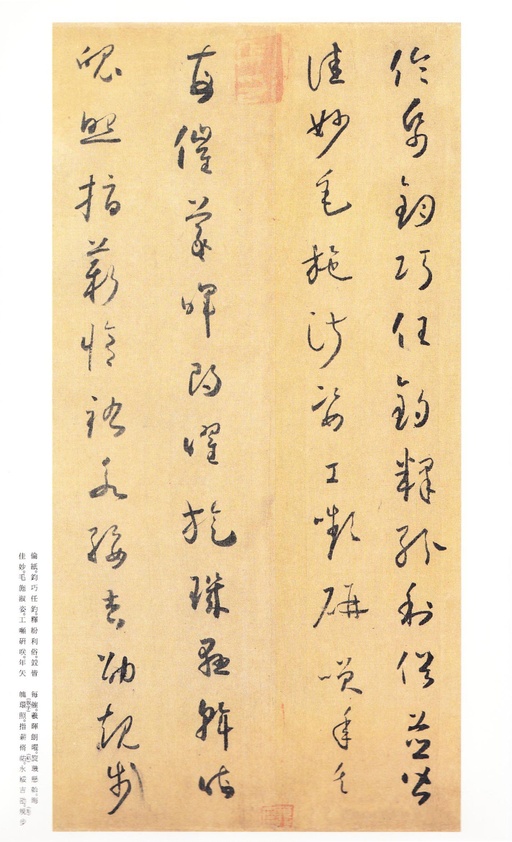 倫紙鈞巧任釣釋紛利俗並皆
佳妙毛施淑姿工嚬研咲年矢
每催羲暉朗曜旋璣懸斡晦
魄照指薪脩祜永綏吉劭規步